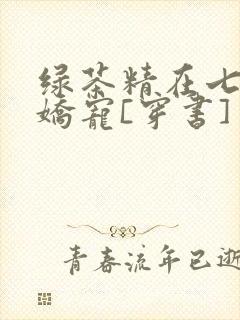 绿茶精在七
娇宠[穿书]
青春流年已逝